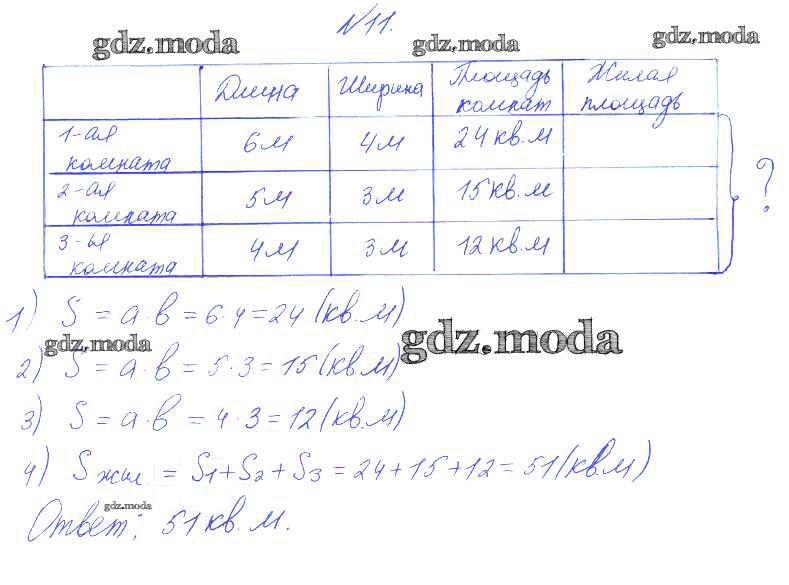 №11.
gdz.moda gdz.moda gdz.moda
Длина Ширина Площадь комнат Жилая площадь
1-ая комната 6м 4м 24 кв.м
2-ая комната 5м 3м 15 кв.м
3-ья комната 4м 3м 12 кв.м
?
1) S = a·b = 6·4 = 24 (кв.м)
gdz.moda gdz.moda
2) S = a·b = 5·3 = 15 (кв.м)
3) S = a·b = 4·3 = 12 (кв.м)
4) S жил = S1 + S2 + S3 = 24 + 15 + 12 = 51 (кв.м)
gdz.moda
Ответ: 51 кв.м.